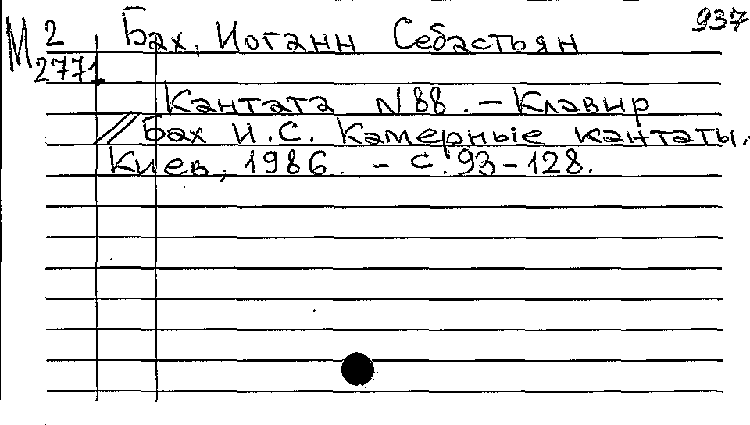 937
М 2 Бах, Иоганн Себастьян
2771
Кантата N 88. - Клавир
// Бах И.С. Камерные кантаты. -
Киев, 1986. - С. 93-128.